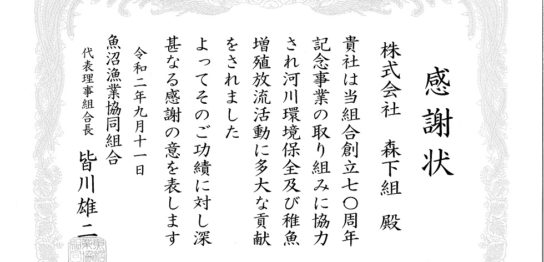 感謝状
株式会社 森下組 殿
貴社は当組合創立七〇周年
記念事業の取り組みに協力
され河川環境保全及び稚魚
増殖放流活動に多大な貢献
をされました
よってそのご功績に対し深
甚なる感謝の意を表します
令和二年九月十一日
魚沼漁業協同組合
代表理事組合長 皆川雄二